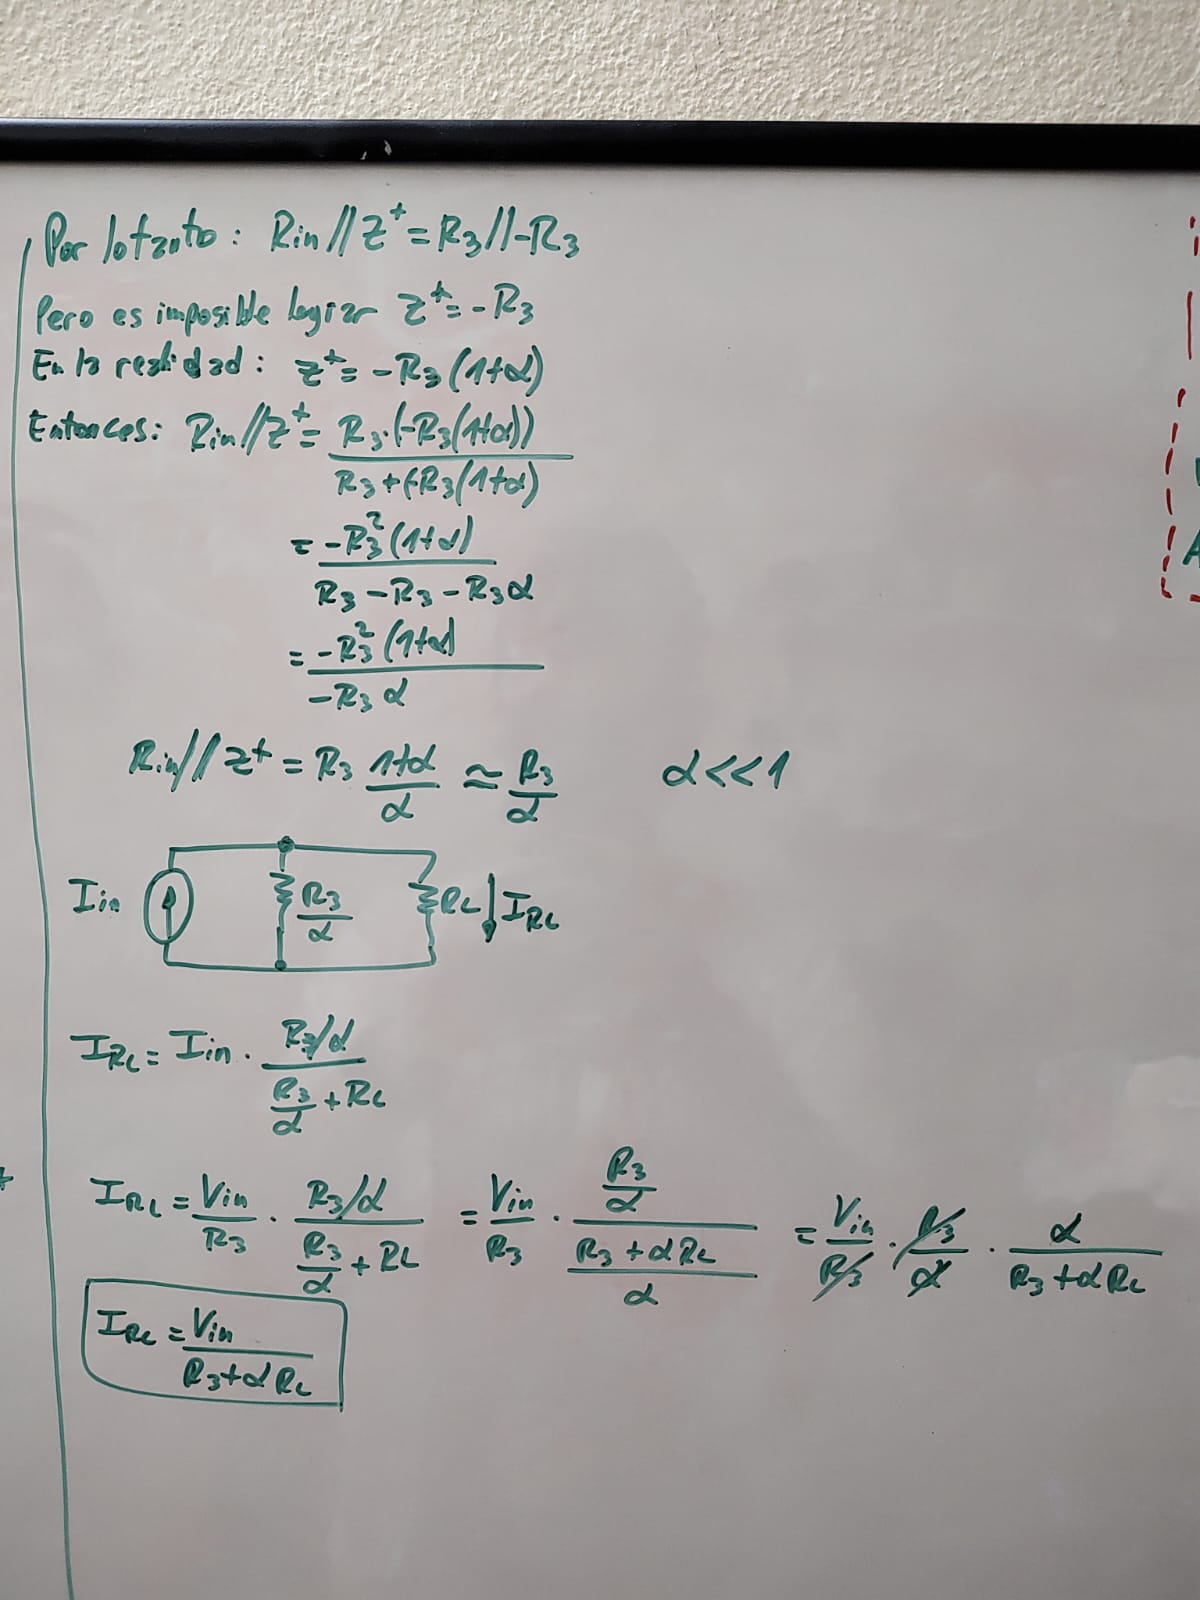 Por lo tanto: Rin//Z⁺=R₃//-R₃
Pero es imposible lograr Z⁺=-R₃
En la realidad: Z⁺=-R₃(1+α)
Entonces: Rin//Z⁺= R₃·(-R₃(1+α))
R₃+(-R₃(1+α)
= -R₃²(1+α)
R₃-R₃-R₃α
= -R₃²(1+α)
-R₃α
Rin//Z⁺ = R₃ 1+α/α ≃ R₃/α α<<1
Iin R₃/α RL IRL
IRL = Iin · R₃/α
R₃/α + RL
IRL = Vin/R₃ · (R₃/α)/(R₃/α + RL) = Vin/R₃ · (R₃/α)/((R₃+αRL)/α) = Vin/R₃ · R₃/α · α/(R₃+αRL)
IRL = Vin
R₃+αRL